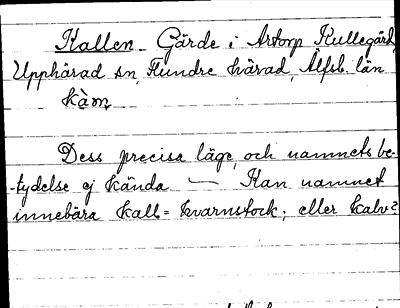 Kallen - Gärde i Artorp Kullegård,
Upphärad sn, Flundre härad, Älfsb. län
kàm
Dess precisa läge, och namnets be-
-tydelse ej kända — Kan namnet
innebära kall = kvarnstock; eller kalv?